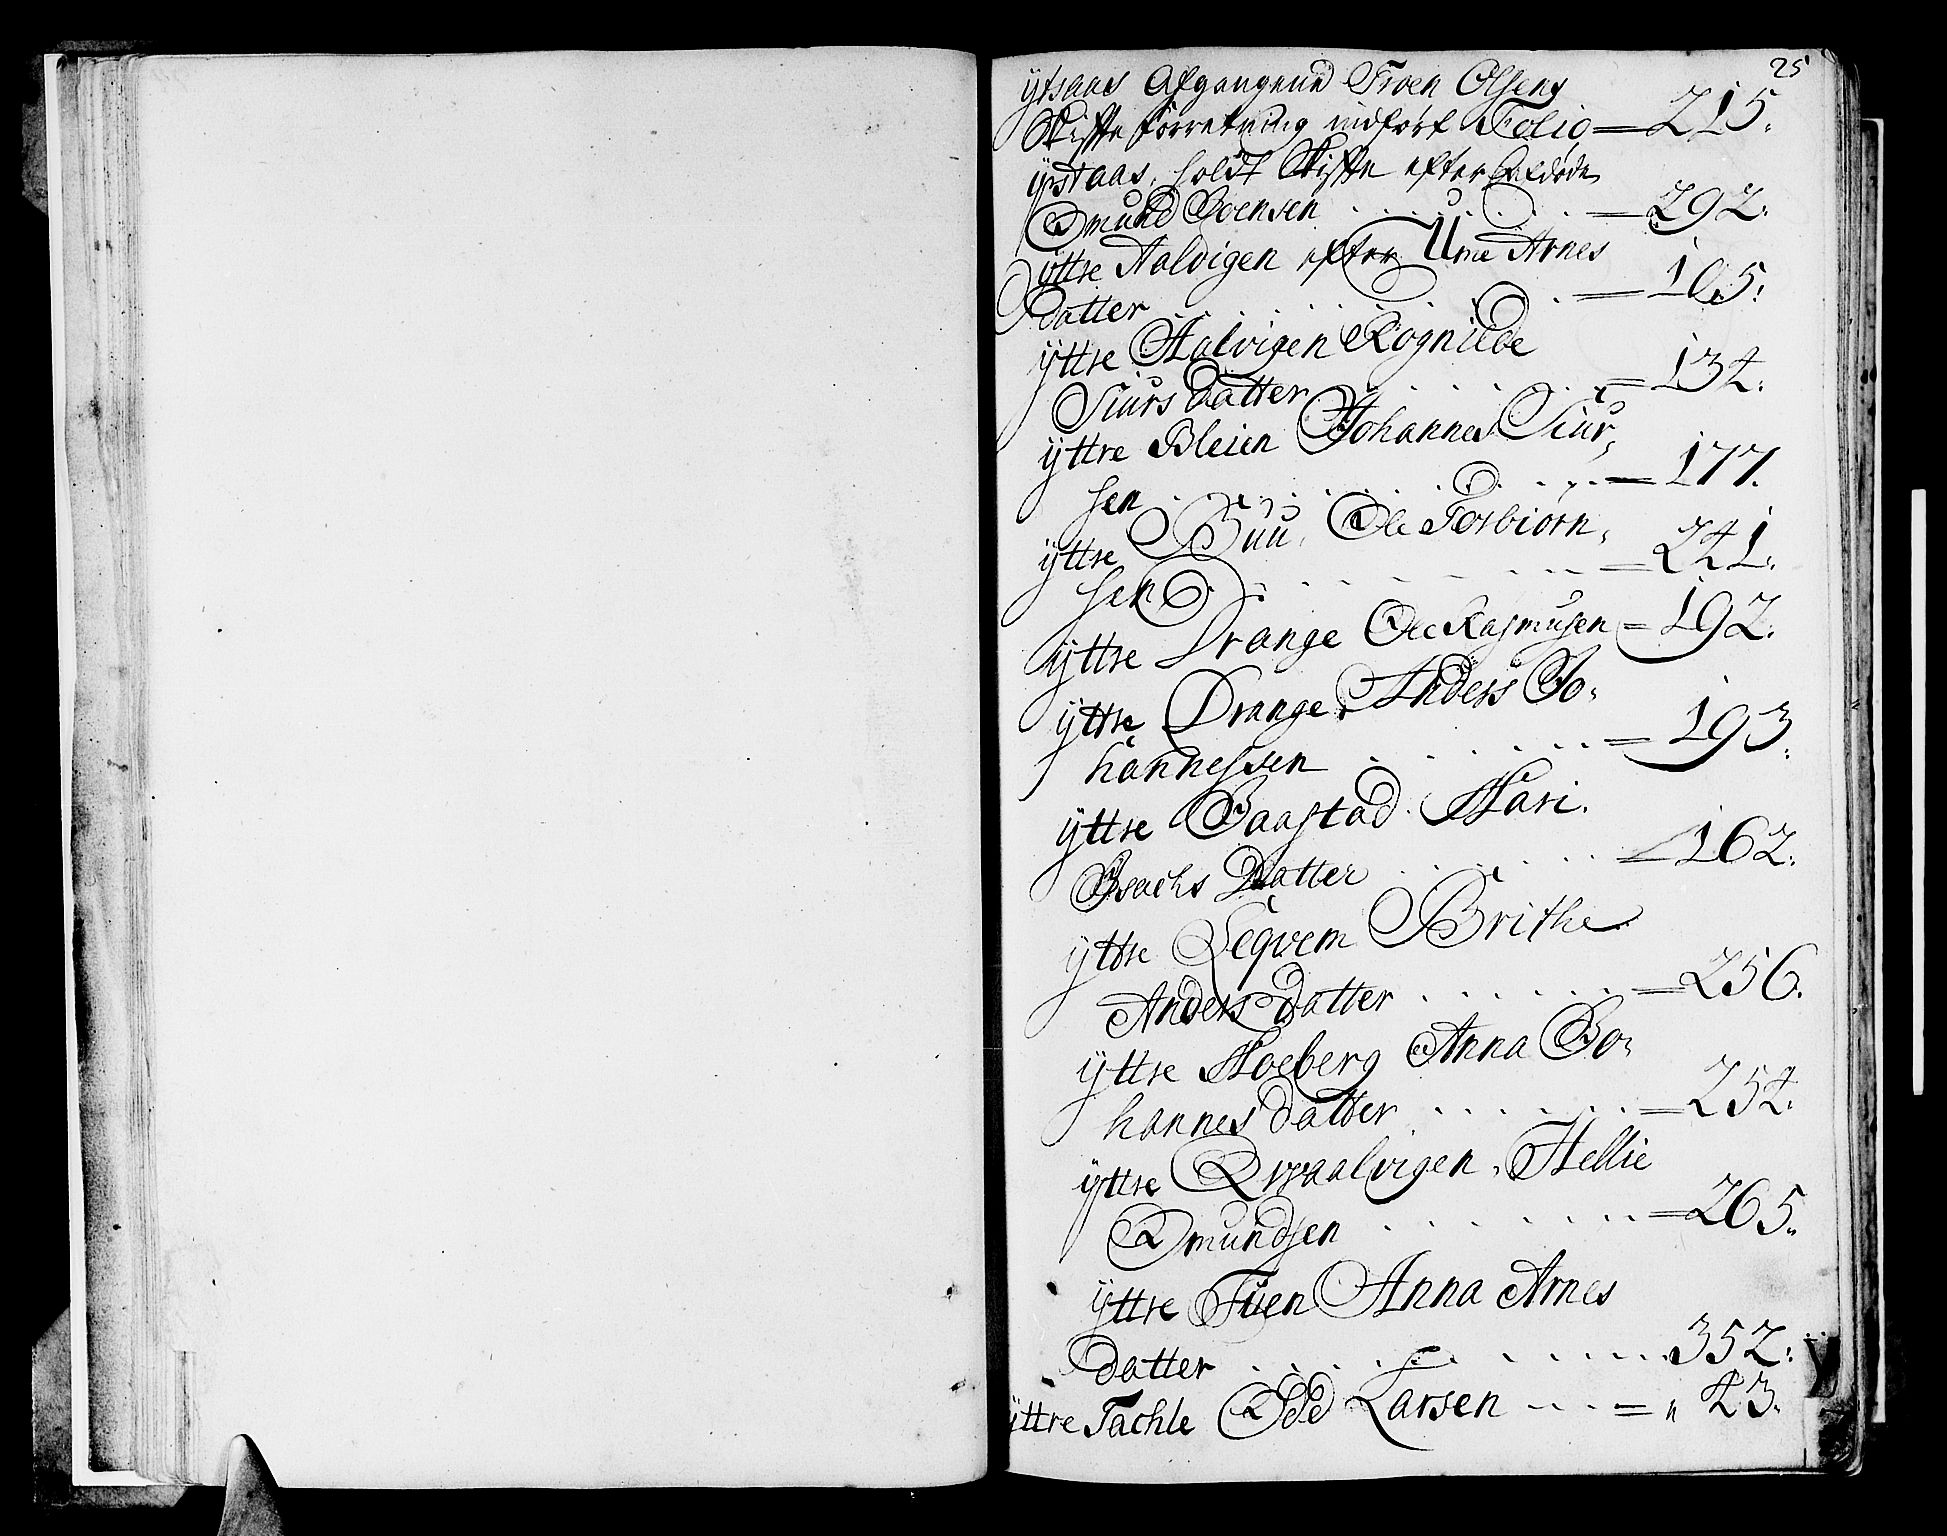 25
ÿtsaas Afgangene Troen Olsens
Skifte forretning indført Folio = 215.
ÿtstaas, holdt Skifte efter Saldøde
Omund Joensen . . . . . = 292.
ÿttre Aalvigen efter Unne Arnes
datter . . . . . = 105.
ÿttre Aalvigen Rognilde
Siurs datter . . . . . = 134.
ÿttre Bleien Johannes Siur,
sen . . . . . = 177.
ÿttre Buu, Ole Torbiørn,
sen . . . . . = 241.
ÿttre Drange Ole Rasmusen = 192.
ÿttre Drange, Anders Jo,
hannessen . . . . . = 193.
ÿttre Baastad Mari.
Isachs Datter . . . . . = 162.
ÿttre Seqvem Brithe
Anders datter . . . . . = 256.
ÿttre Moeberg Anna Jo,
hannes datter . . . . . = 254.
ÿttre Qvaalvigen, Hellie
Omundsen . . . . . = 265.
ÿttre Tuen Anna Arnes
datter . . . . . 352.
ÿttre Tachle Odd Larsen . . . = " 43.